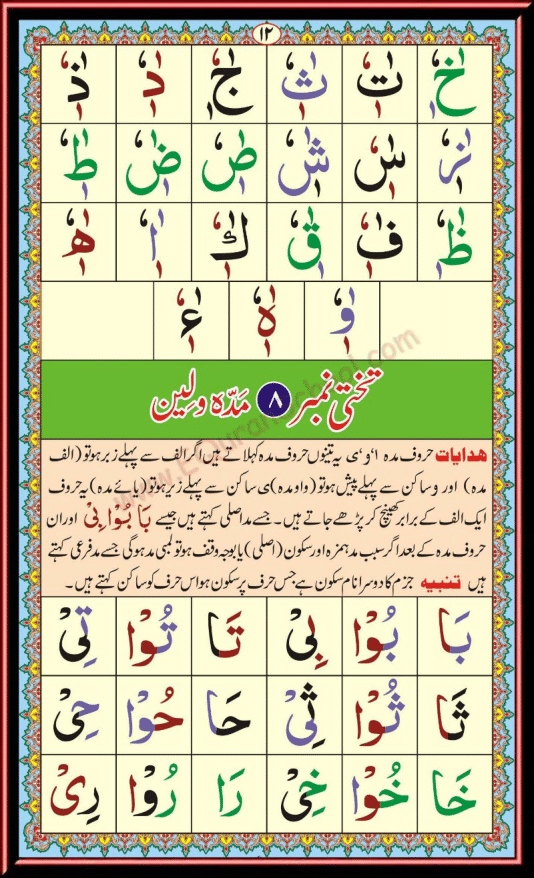 ١٢
خٰٖٗ تٰٖٗ ثٰٖٗ جٰٖٗ دٰٖٗ ذٰٖٗ
زٰٖٗ سٰٖٗ شٰٖٗ صٰٖٗ ضٰٖٗ طٰٖٗ
ظٰٖٗ فٰٖٗ قٰٖٗ كٰٖٗ اٰٖٗ هٰٖٗ
وٰٖٗ ہٰٖٗ ءٰٖٗ
تختی نمبر ۸ مَدّہ و لِین
ھدایات حروف مدہ ا ’و‘ ی یہ تینوں حروف مدہ کہلاتے ہیں اگر الف سے پہلے زبر ہو تو (الف
مدہ) اور و ساکن سے پہلے پیش ہو تو (واو مدہ) ی ساکن سے پہلے زیر ہو تو (یائے مدہ) یہ حروف
ایک الف کے برابر کھینچ کر پڑھے جاتے ہیں۔ جسے مد اصلی کہتے ہیں جیسے بَا بُوْا بِیْ اور ان
حروف مدہ کے بعد اگر سبب مد ہمزہ اور سکون (اصلی) یا بوجہ وقف ہو تو لمبی مد ہوگی جسے مد فرعی کہتے
ہیں تنبیہ جزم کا دوسرا نام سکون ہے جس حرف پر سکون ہو اس حرف کو ساکن کہتے ہیں۔
بَا بُوْا بِیْ تَا تُوْا تِیْ
ثَا ثُوْا ثِیْ حَا حُوْا حِیْ
خَا خُوْا خِیْ رَا رُوْا رِیْ
www.equranschool.com